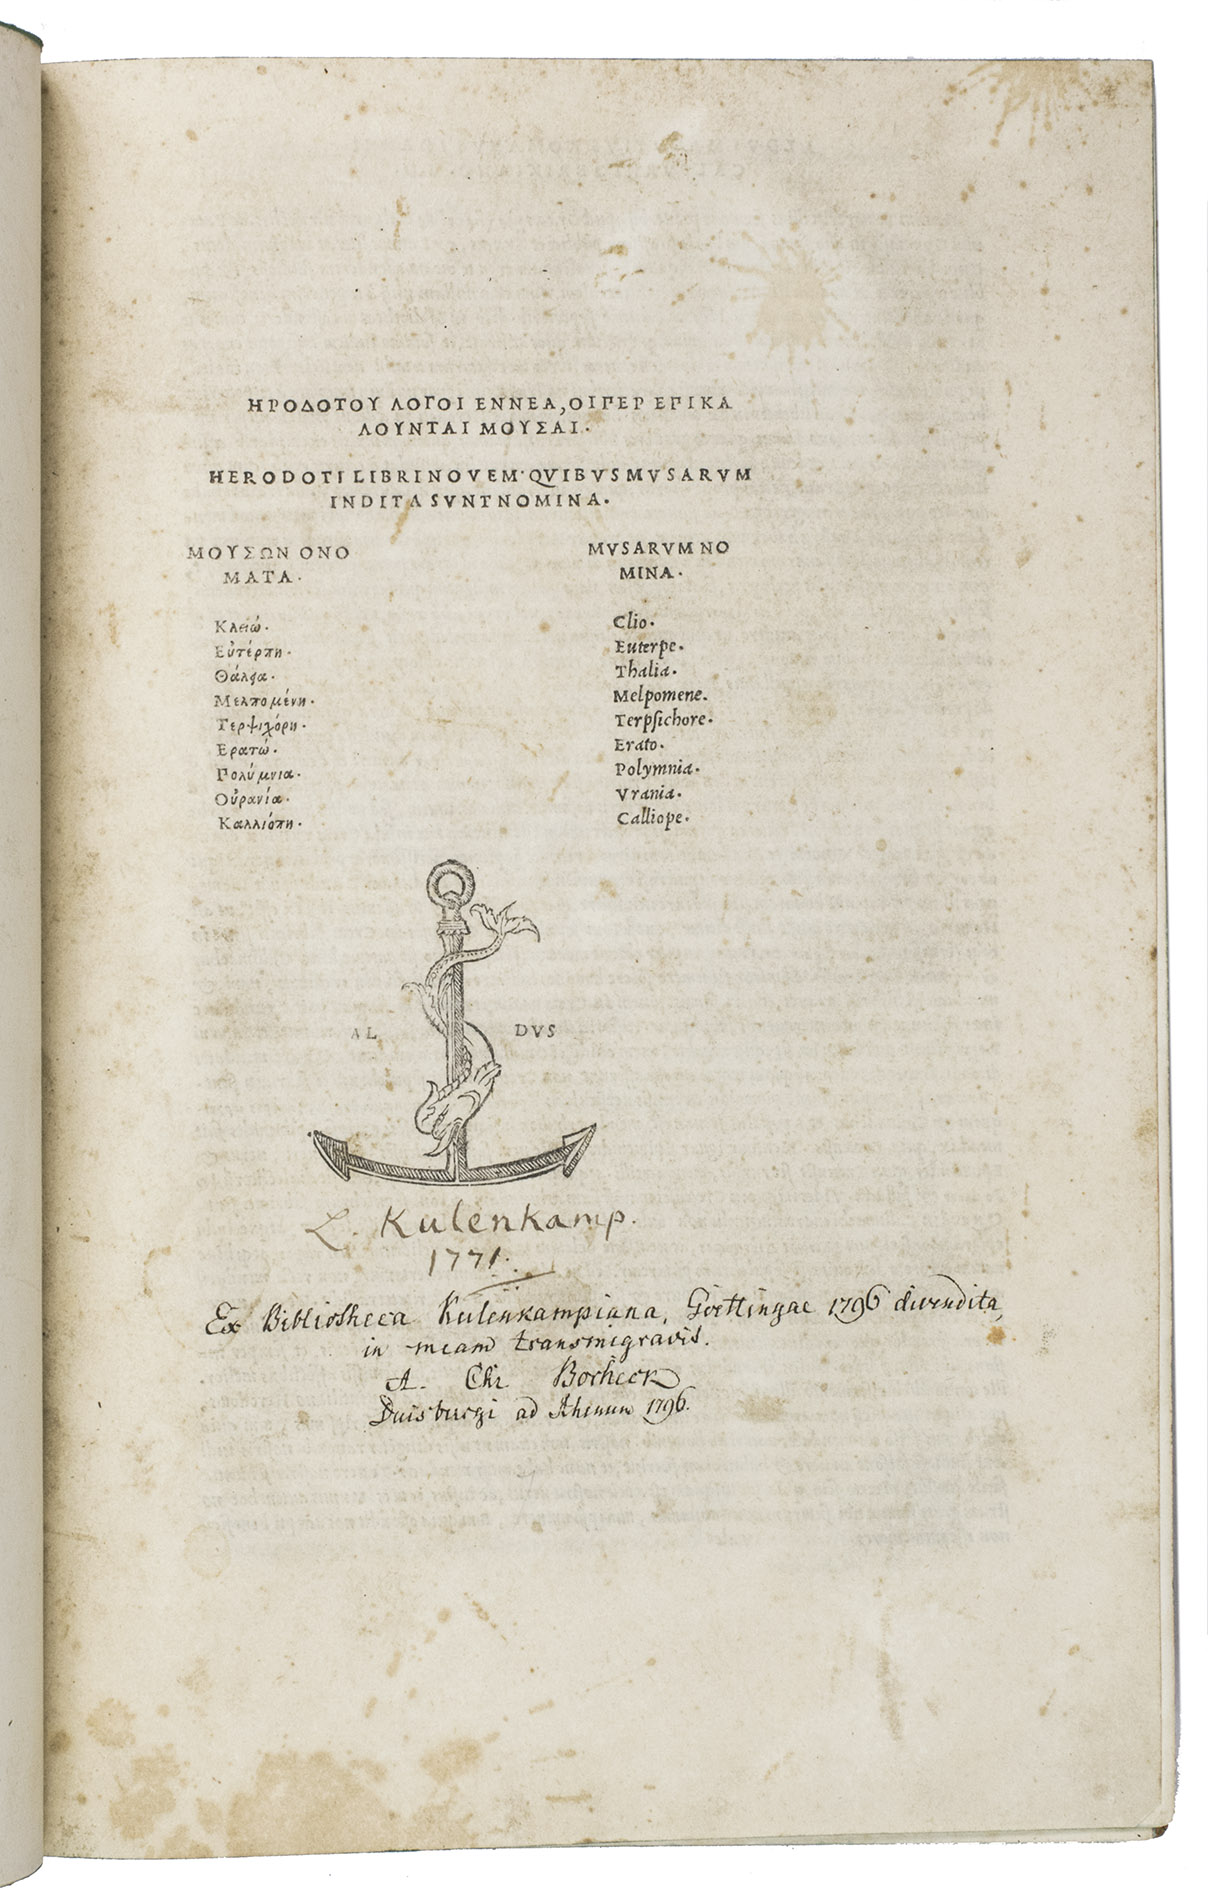 ΗΡΟΔΟΤΟΥ ΛΟΓΟΙ ΕΝΝΕΑ, ΟΙΠΕΡ ΕΠΙΚΑ
ΛΟΥΝΤΑΙ ΜΟΥΣΑΙ.
HERODOTI LIBRI NOVEM· QVIBVS MVSARVM
INDITA SVNT NOMINA.
ΜΟΥΣΩΝ ΟΝΟ
ΜΑΤΑ.
Κλειώ.
Εὐτέρπη.
Θάλεια.
Μελπομένη.
Τερψιχόρη.
Ερατώ.
Πολύμνια.
Οὐρανία.
Καλλιόπη.
MVSARVM NO
MINA.
Clio.
Euterpe.
Thalia.
Melpomene.
Terpſichore.
Erato.
Polymnia.
Vrania.
Calliope.
AL DVS
L. Kulenkamp.
1771.
Ex Bibliotheca Kulenkampiana, Goettingae 1796 divendita,
in meam transmigravit.
A. Chr. Borheck
Duisburgi ad Rhenum 1796.